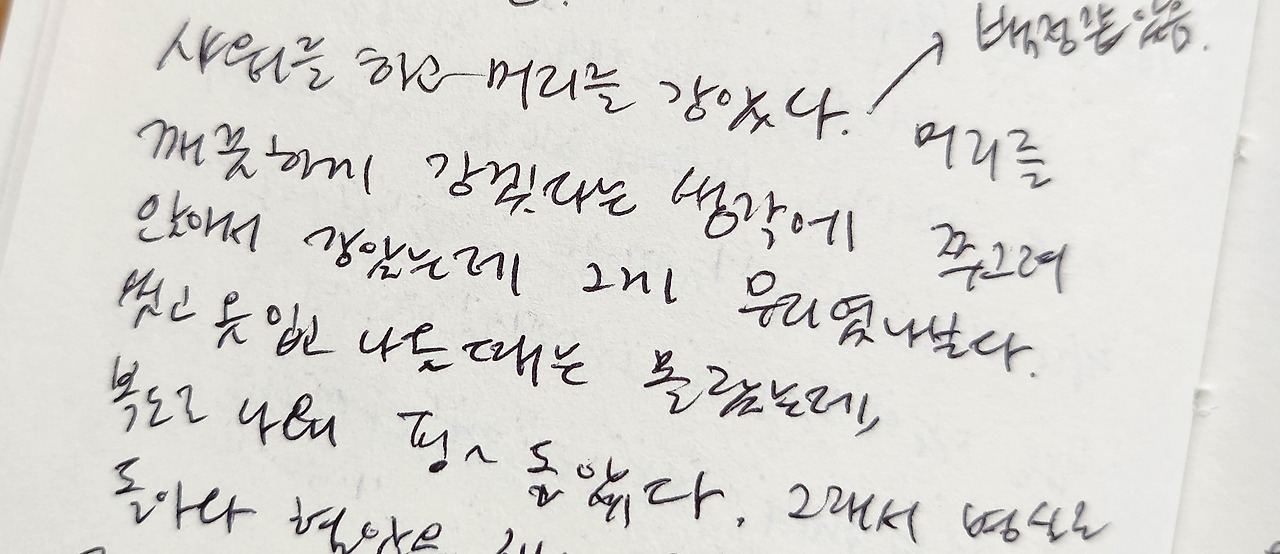 샤워를 하고 머리를 감았다.
머리를
깨끗하게 감겠다는 생각에 쭈그려
앉아서 감았는데 그게 무리였나보다.
씻고 옷 입고 나올때는 몰랐는데,
복도로 나오니 핑~ 돌았다. 그래서 병실로
돌아와 혈압을